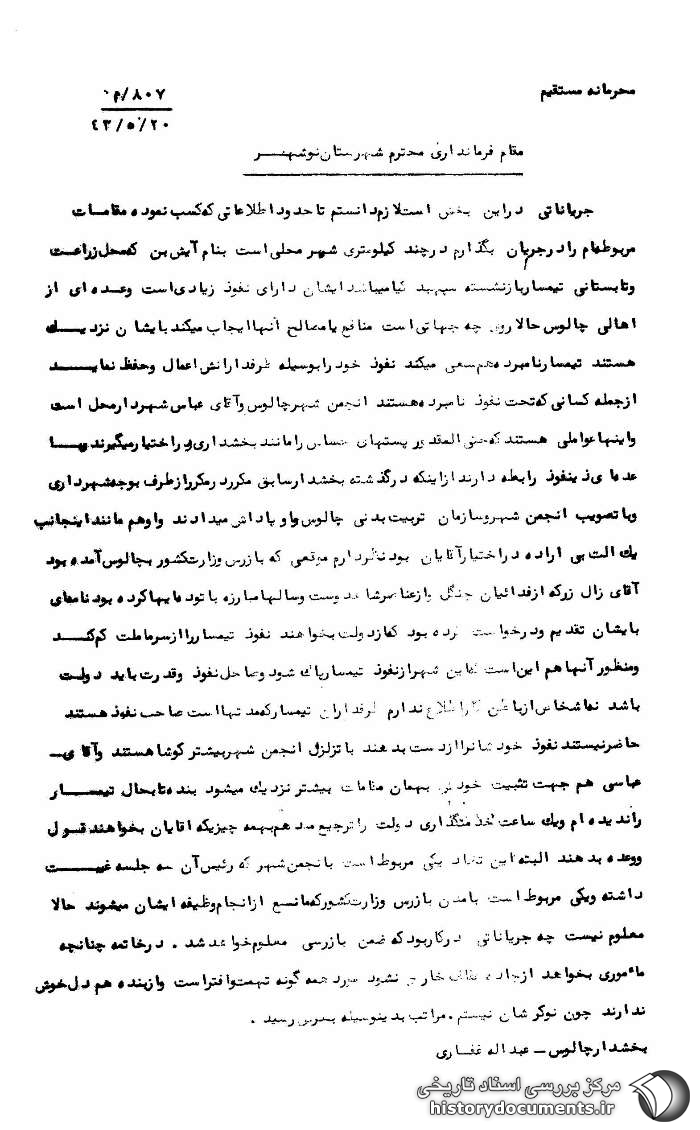 محرمانه مستقیم
۸۰۷/م
۴۳/۵/۲۰
مقام فرمانداری محترم شهرستان نوشهر
جریاناتی دراین بخش است لازم دانستم تا حدود اطلاعاتی که کسب نموده مقامات
مربوطه را در جریان بگذارم در چند کیلومتری شهر محلی است بنام آیش بن که محل زراعت
وتابستانی تیمسار بازنشسته سپهبد کیا میباشد ایشان دارای نفوذ زیادی است وعده ای از
اهالی چالوس حالا روی چه جهاتی است منافع یا مصالح آنها ایجاب میکند بایشان نزدیک
هستند تیمسار نامبرده هم سعی میکند نفوذ خود را بوسیله طرفدارانش اعمال وحفظ نماید
ازجمله کسانی که تحت نفوذ نامبرده هستند انجمن شهر چالوس وآقای عباسی شهردار محل است
واینها عواملی هستند که حتی المقدور پستهای حساس را مانند بخشداری و در اختیار میگیرند یا با
عده ای ذینفوذ رابطه دارند از اینکه درگذشته بخشدار سابق مکرر در مکرر از طرف بوجه شهرداری
وبا تصویب انجمن شهر وسازمان تربیت بدنی چالوس وام و پاداش میدادند واو هم مانند اینجانب
یک آلت بی اراده در اختیار آقایان بود نظر دارم موقعی که بازرس وزارت کشور بچالوس آمده بود
آقای زال زر که از فدائیان جنگل واز عناصر شاهدوست وسالها مبارزه با توده ایها کرده بود نامه ای
بایشان تقدیم ودرخواست کرده بود که از دولت بخواهند نفوذ تیمسار را از سر ملت کم کند
ومنظور آنها هم این است که این شهر از نفوذ تیمسار پاک شود وصاحل نفوذ وقدرت باید دولت
باشد اشخاص از باطن کار اطلاع ندارم طرفداران تیمسار که مدتها است صاحب نفوذ هستند
حاضر نیستند نفوذ خودشان را از دست بدهند با تزلزل انجمن شهر بیشتر کوشا هستند وآقای
عباسی هم جهت تثبیت خود بهمان مقامات بیشتر نزدیک میشود بنده تابحال تیمسار
را ندیده ام ویک ساعت خدمتگذاری دولت را ترجیع میدهم بهمه چیزیکه آقایان بخواهند قول
ووعده بدهند البته این تضاد یکی مربوط است بانجمن شهر که رئیس آن سه جلسه غیبت
داشته ویکی مربوط است بآمدن بازرس وزارت کشور که مانع از انجام وظیفه ایشان میشوند حالا
معلوم نیست چه جریاناتی در کار بود که ضمن بازرسی معلوم خواهد شد . درخاتمه چنانچه
مأموری بخواهد از جاده خارج نشود مورد همه گونه تهمت وافترا است واز بنده هم دل خوش
ندارند چون نوکرشان نیستم . مراتب بدینوسیله بعرض رسید .
بخشدار چالوس - عبداله غفاری
مرکز بررسی اسناد تاریخی
historydocuments.ir